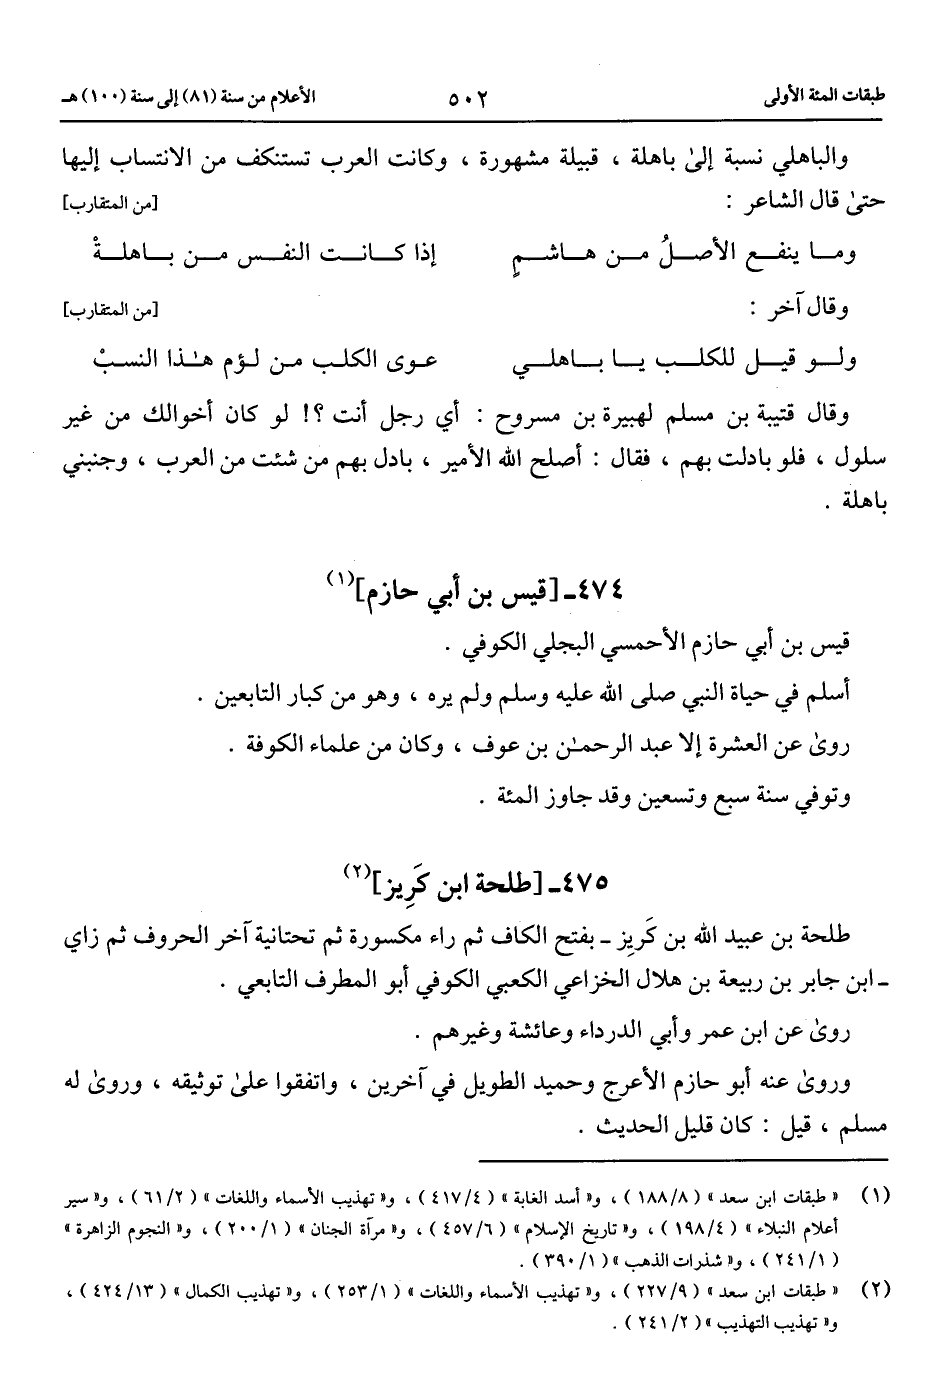 طبقات المئة الأولى ٥٠٢ الأعلام من سنة (٨١) إلى سنة (١٠٠) هـ
والباهلي نسبة إلىٰ باهلة ، قبيلة مشهورة ، وكانت العرب تستنكف من الانتساب إليها
حتىٰ قال الشاعر : [من المتقارب]
ومـا ينفـع الأصـلُ مـن هـاشـمٍ إذا كـانـت النفـس مـن بـاهلـةْ
وقال آخر : [من المتقارب]
ولـو قيـل للكلـب يـا بـاهلـي عـوى الكلـب مـن لـؤم هـٰذا النسبْ
وقال قتيبة بن مسلم لهبيرة بن مسروح : أي رجل أنت ؟! لو كان أخوالك من غير
سلول ، فلو بادلت بهم ، فقال : أصلح الله الأمير ، بادل بهم من شئت من العرب ، وجنبني
باهلة .
٤٧٤ـ [قيس بن أبي حازم](١)
قيس بن أبي حازم الأحمسي البجلي الكوفي .
أسلم في حياة النبي صلى الله عليه وسلم ولم يره ، وهو من كبار التابعين .
روىٰ عن العشرة إلا عبد الرحمـٰن بن عوف ، وكان من علماء الكوفة .
وتوفي سنة سبع وتسعين وقد جاوز المئة .
٤٧٥ـ [طلحة ابن كَرِيز](٢)
طلحة بن عبيد الله بن كَرِيز ـ بفتح الكاف ثم راء مكسورة ثم تحتانية آخر الحروف ثم زاي
ـ ابن جابر بن ربيعة بن هلال الخزاعي الكعبي الكوفي أبو المطرف التابعي .
روىٰ عن ابن عمر وأبي الدرداء وعائشة وغيرهم .
وروىٰ عنه أبو حازم الأعرج وحميد الطويل في آخرين ، واتفقوا علىٰ توثيقه ، وروىٰ له
مسلم ، قيل : كان قليل الحديث .
(١) « طبقات ابن سعد » ( ١٨٨/٨ ) ، و« أسد الغابة » ( ٤١٧/٤ ) ، و« تهذيب الأسماء واللغات » ( ٦١/٢ ) ، و« سير
أعلام النبلاء » ( ١٩٨/٤ ) ، و« تاريخ الإسلام » ( ٤٥٧/٦ ) ، و« مرآة الجنان » ( ٢٠٠/١ ) ، و« النجوم الزاهرة »
( ٢٤١/١ ) ، و« شذرات الذهب » ( ٣٩٠/١ ) .
(٢) « طبقات ابن سعد » ( ٢٢٧/٩ ) ، و« تهذيب الأسماء واللغات » ( ٢٥٣/١ ) ، و« تهذيب الكمال » ( ٤٢٤/١٣ ) ،
و« تهذيب التهذيب » ( ٢٤١/٢ ) .